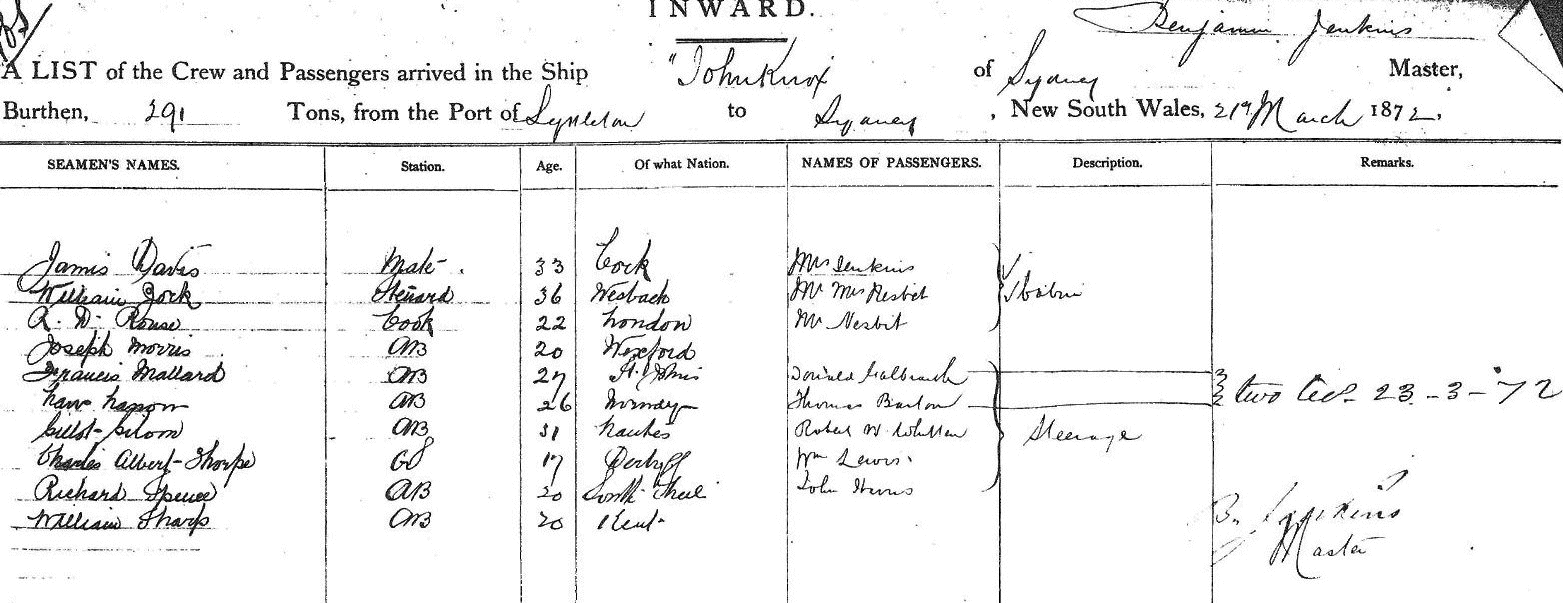 INWARD.
Benjamin Jenkins
A LIST of the Crew and Passengers arrived in the Ship "John Knox of Sydney Master,
Burthen, 291 Tons, from the Port of Lyttleton to Sydney, New South Wales, 21st March 1872,
SEAMEN'S NAMES. Station. Age. Of what Nation. NAMES OF PASSENGERS. Description. Remarks.
James Davis Mate 33 Cork Mrs Jenkins
William Jock Steward 36 Wesbach Mr Mrs Nesbit
R. W. Rouse Cook 22 London Mr Nesbit
Joseph Morris AB 20 Wexford
Francis Mallard AB 27 St. Johns Donald Galbraith
AB 26 Thomas Barton two 23-3-72
AB 31 Nantes Robert W. Steerage
Charles Albert Thorpe 17 Wm Lewis
Richard Spence AB 20 South John
William Sharp AB 20 Kent
B. Jenkins
Master